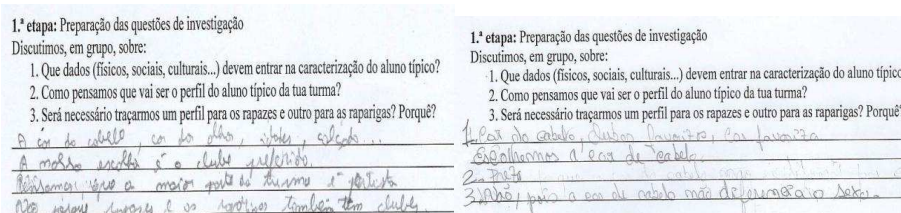 1.ª etapa: Preparação das questões de investigação
Discutimos, em grupo, sobre:
1. Que dados (físicos, sociais, culturais...) devem entrar na caracterização do aluno típico?
2. Como pensamos que vai ser o perfil do aluno típico da tua turma?
3. Será necessário traçarmos um perfil para os rapazes e outro para as raparigas? Porquê?
A cor do cabelo, cor dos olhos, idades, calçado...
A nossa escolha é o clube preferido.
Pensamos que a maior parte da turma é portista
Não porque rapazes e as também têm clubes.
1.ª etapa: Preparação das questões de investigação
Discutimos, em grupo, sobre:
1. Que dados (físicos, sociais, culturais...) devem entrar na caracterização do aluno típico
2. Como pensamos que vai ser o perfil do aluno típico da tua turma?
3. Será necessário traçarmos um perfil para os rapazes e outro para as raparigas? Porquê
1. Cor do cabelo, clubes favoritos, cor favorita
Escolhemos a cor de cabelo.
2- Preto
3. Não, pois a cor de cabelo não o sexo.